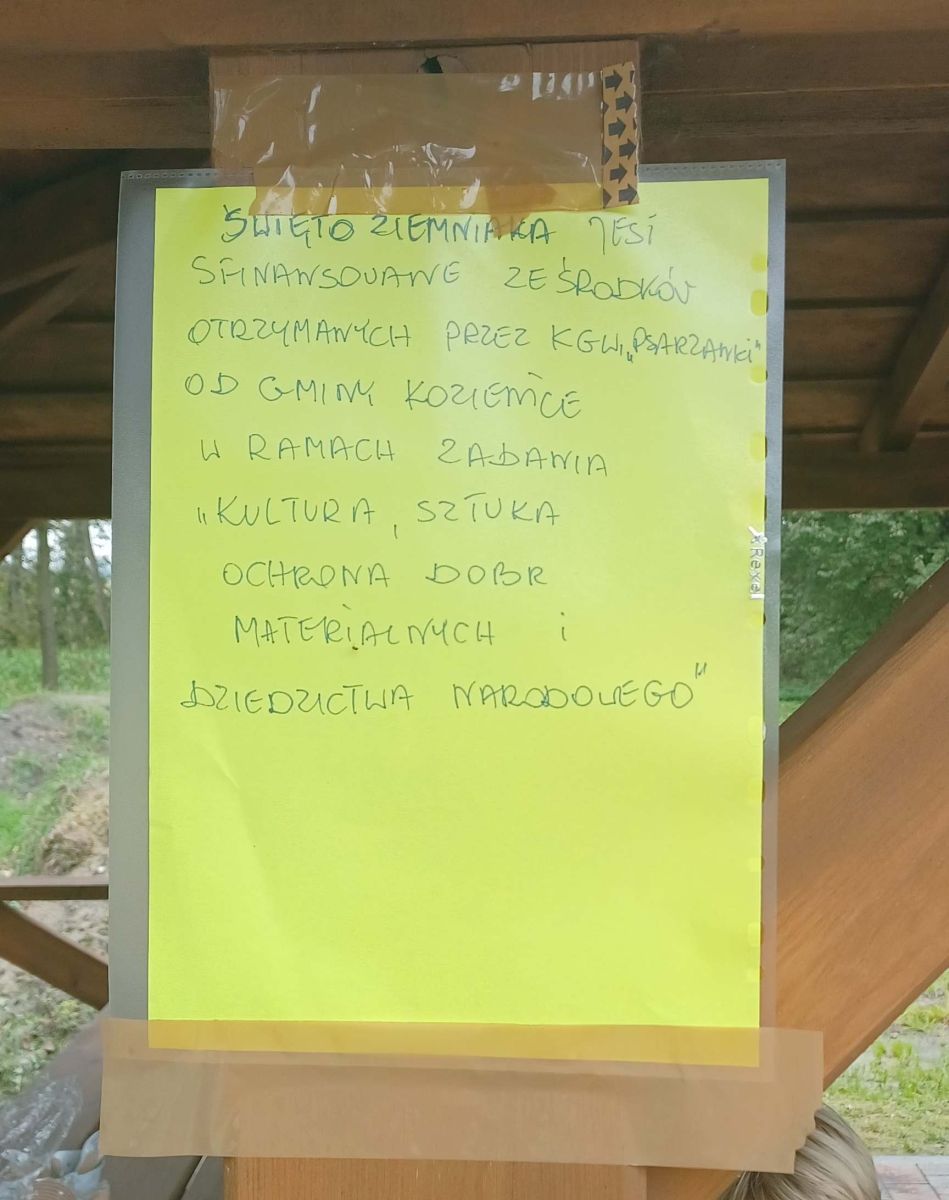 ŚWIĘTO ZIEMNIAKA JEST
SFINANSOWANE ZE ŚRODKÓW
OTRZYMANYCH PRZEZ KGW „PSARZANKI"
OD GMINY KOZIENICE
W RAMACH ZADANIA
„KULTURA, SZTUKA
OCHRONA DOBR
MATERIALNYCH i
DZIEDZICTWA NARODOWEGO"
Rexel